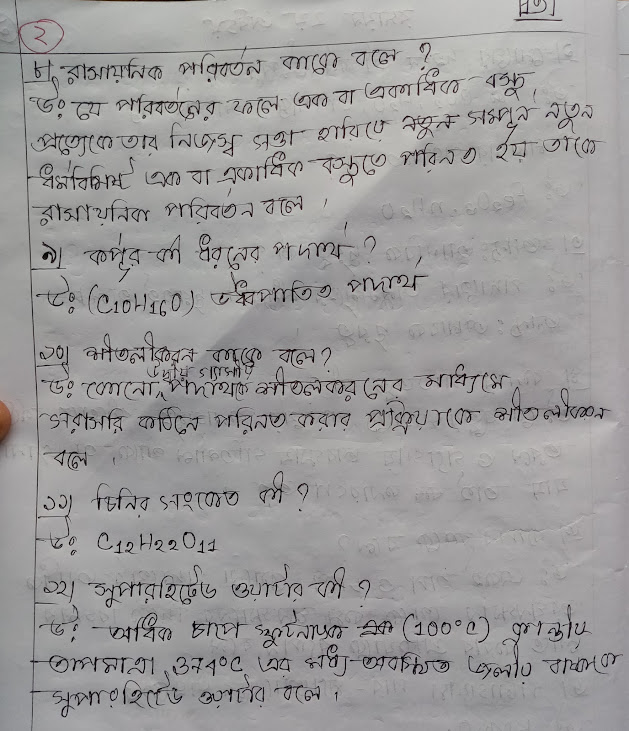 ২
৮। রাসায়নিক পরিবর্তন কাকে বলে ?
উঃ যে পরিবর্তনের ফলে এক বা একাধিক বস্তু,
প্রত্যেকে তার নিজস্ব সত্তা হারিয়ে নতুন সম্পূর্ন নতুন
ধর্মবিশিষ্ট এক বা একাধিক বস্তুতে পরিনত হয় তাকে
রাসায়নিক পরিবর্তন বলে ।
৯। কর্পূর কী ধরনের পদার্থ ?
উঃ (C10H16O) উর্ধ্বপাতিত পদার্থ
১০। শীতলীকরন কাকে বলে?
উঃ কোনো পদার্থকে শীতলকরনের মাধ্যমে
সরাসরি কঠিনে পরিনত করার প্রক্রিয়াকে শীতলীকরন
বলে ।
১১। চিনির সংকেত কী ?
উঃ C12H22O11
১২। সুপারহিটেড ওয়াটার কী ?
উঃ অধিক চাপে স্ফুটনাংক (100°C) ক্রান্তীয়
তাপমাত্রা 374°C এর মধ্যে অবস্থিত জলীয় বাষ্পকে
সুপারহিটেড ওয়াটার বলে ।